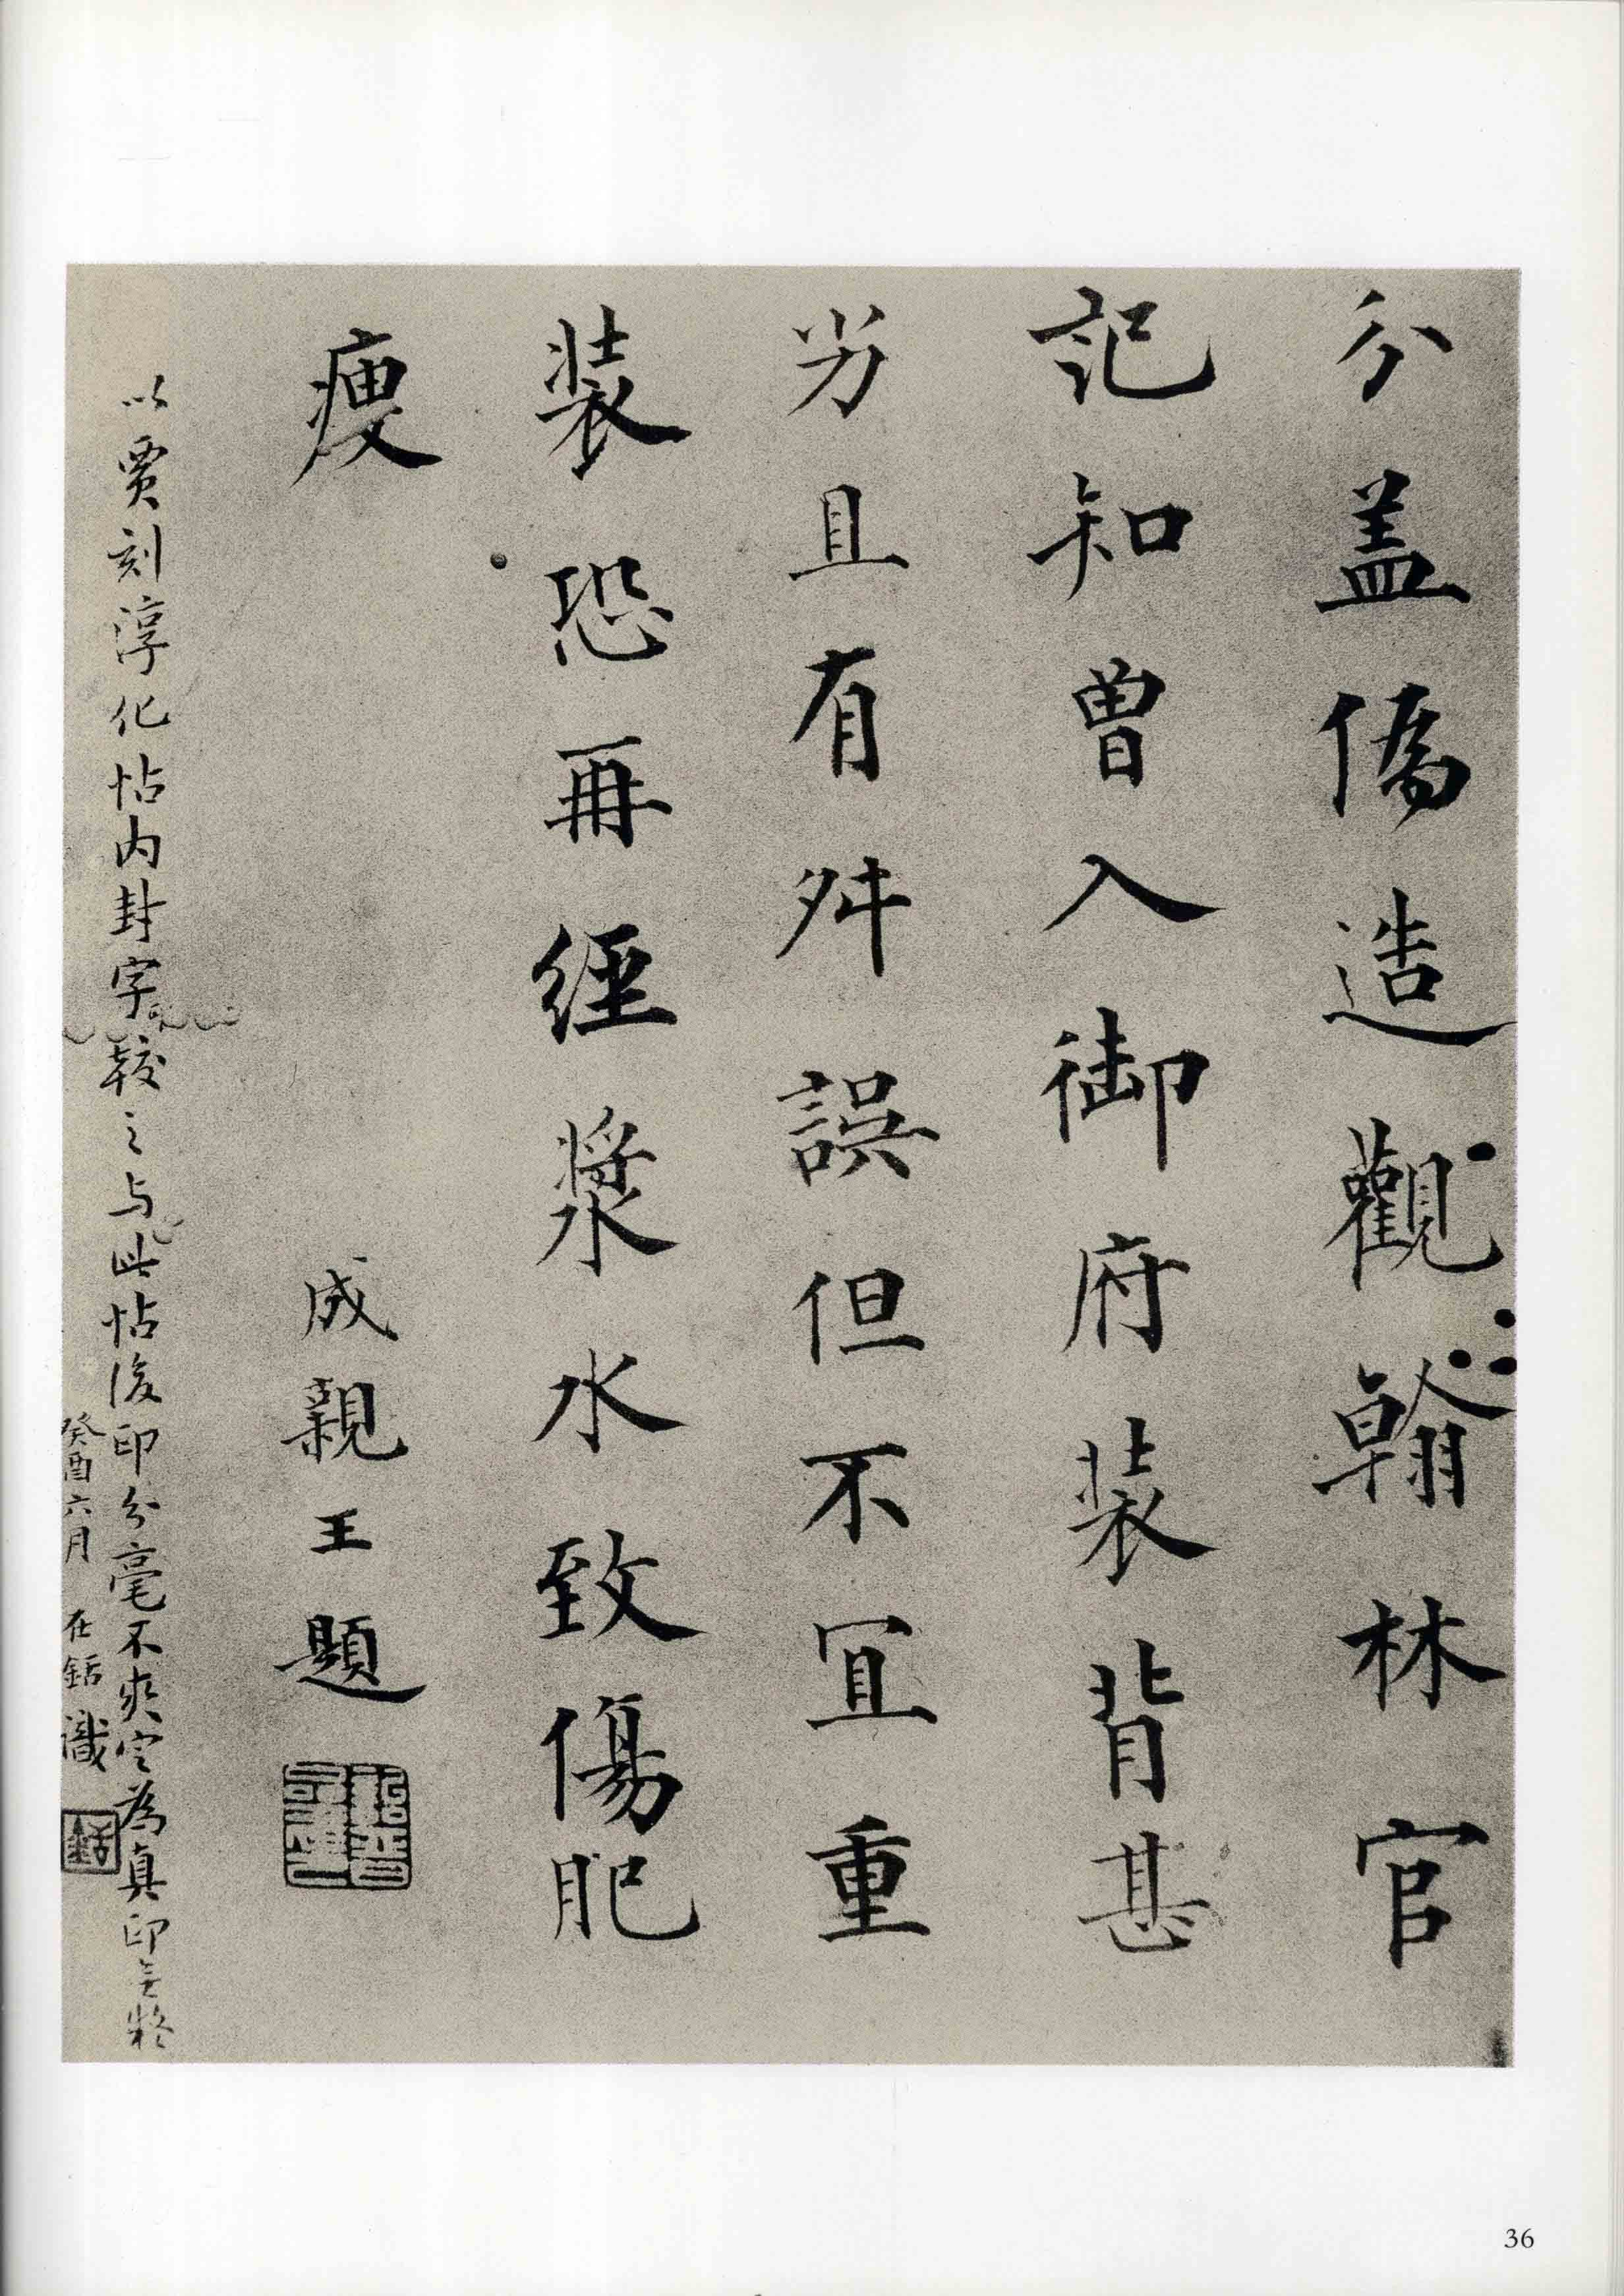 分盖僞造觀翰林官
記知曾入御府装背甚
另且有舛誤但不宜重
装恐再經漿水致傷肥
瘦
成親王題
以賈刻淳化帖内封字較之与此帖後印分毫不爽定為真印無疑
癸酉六月 在銛識
36